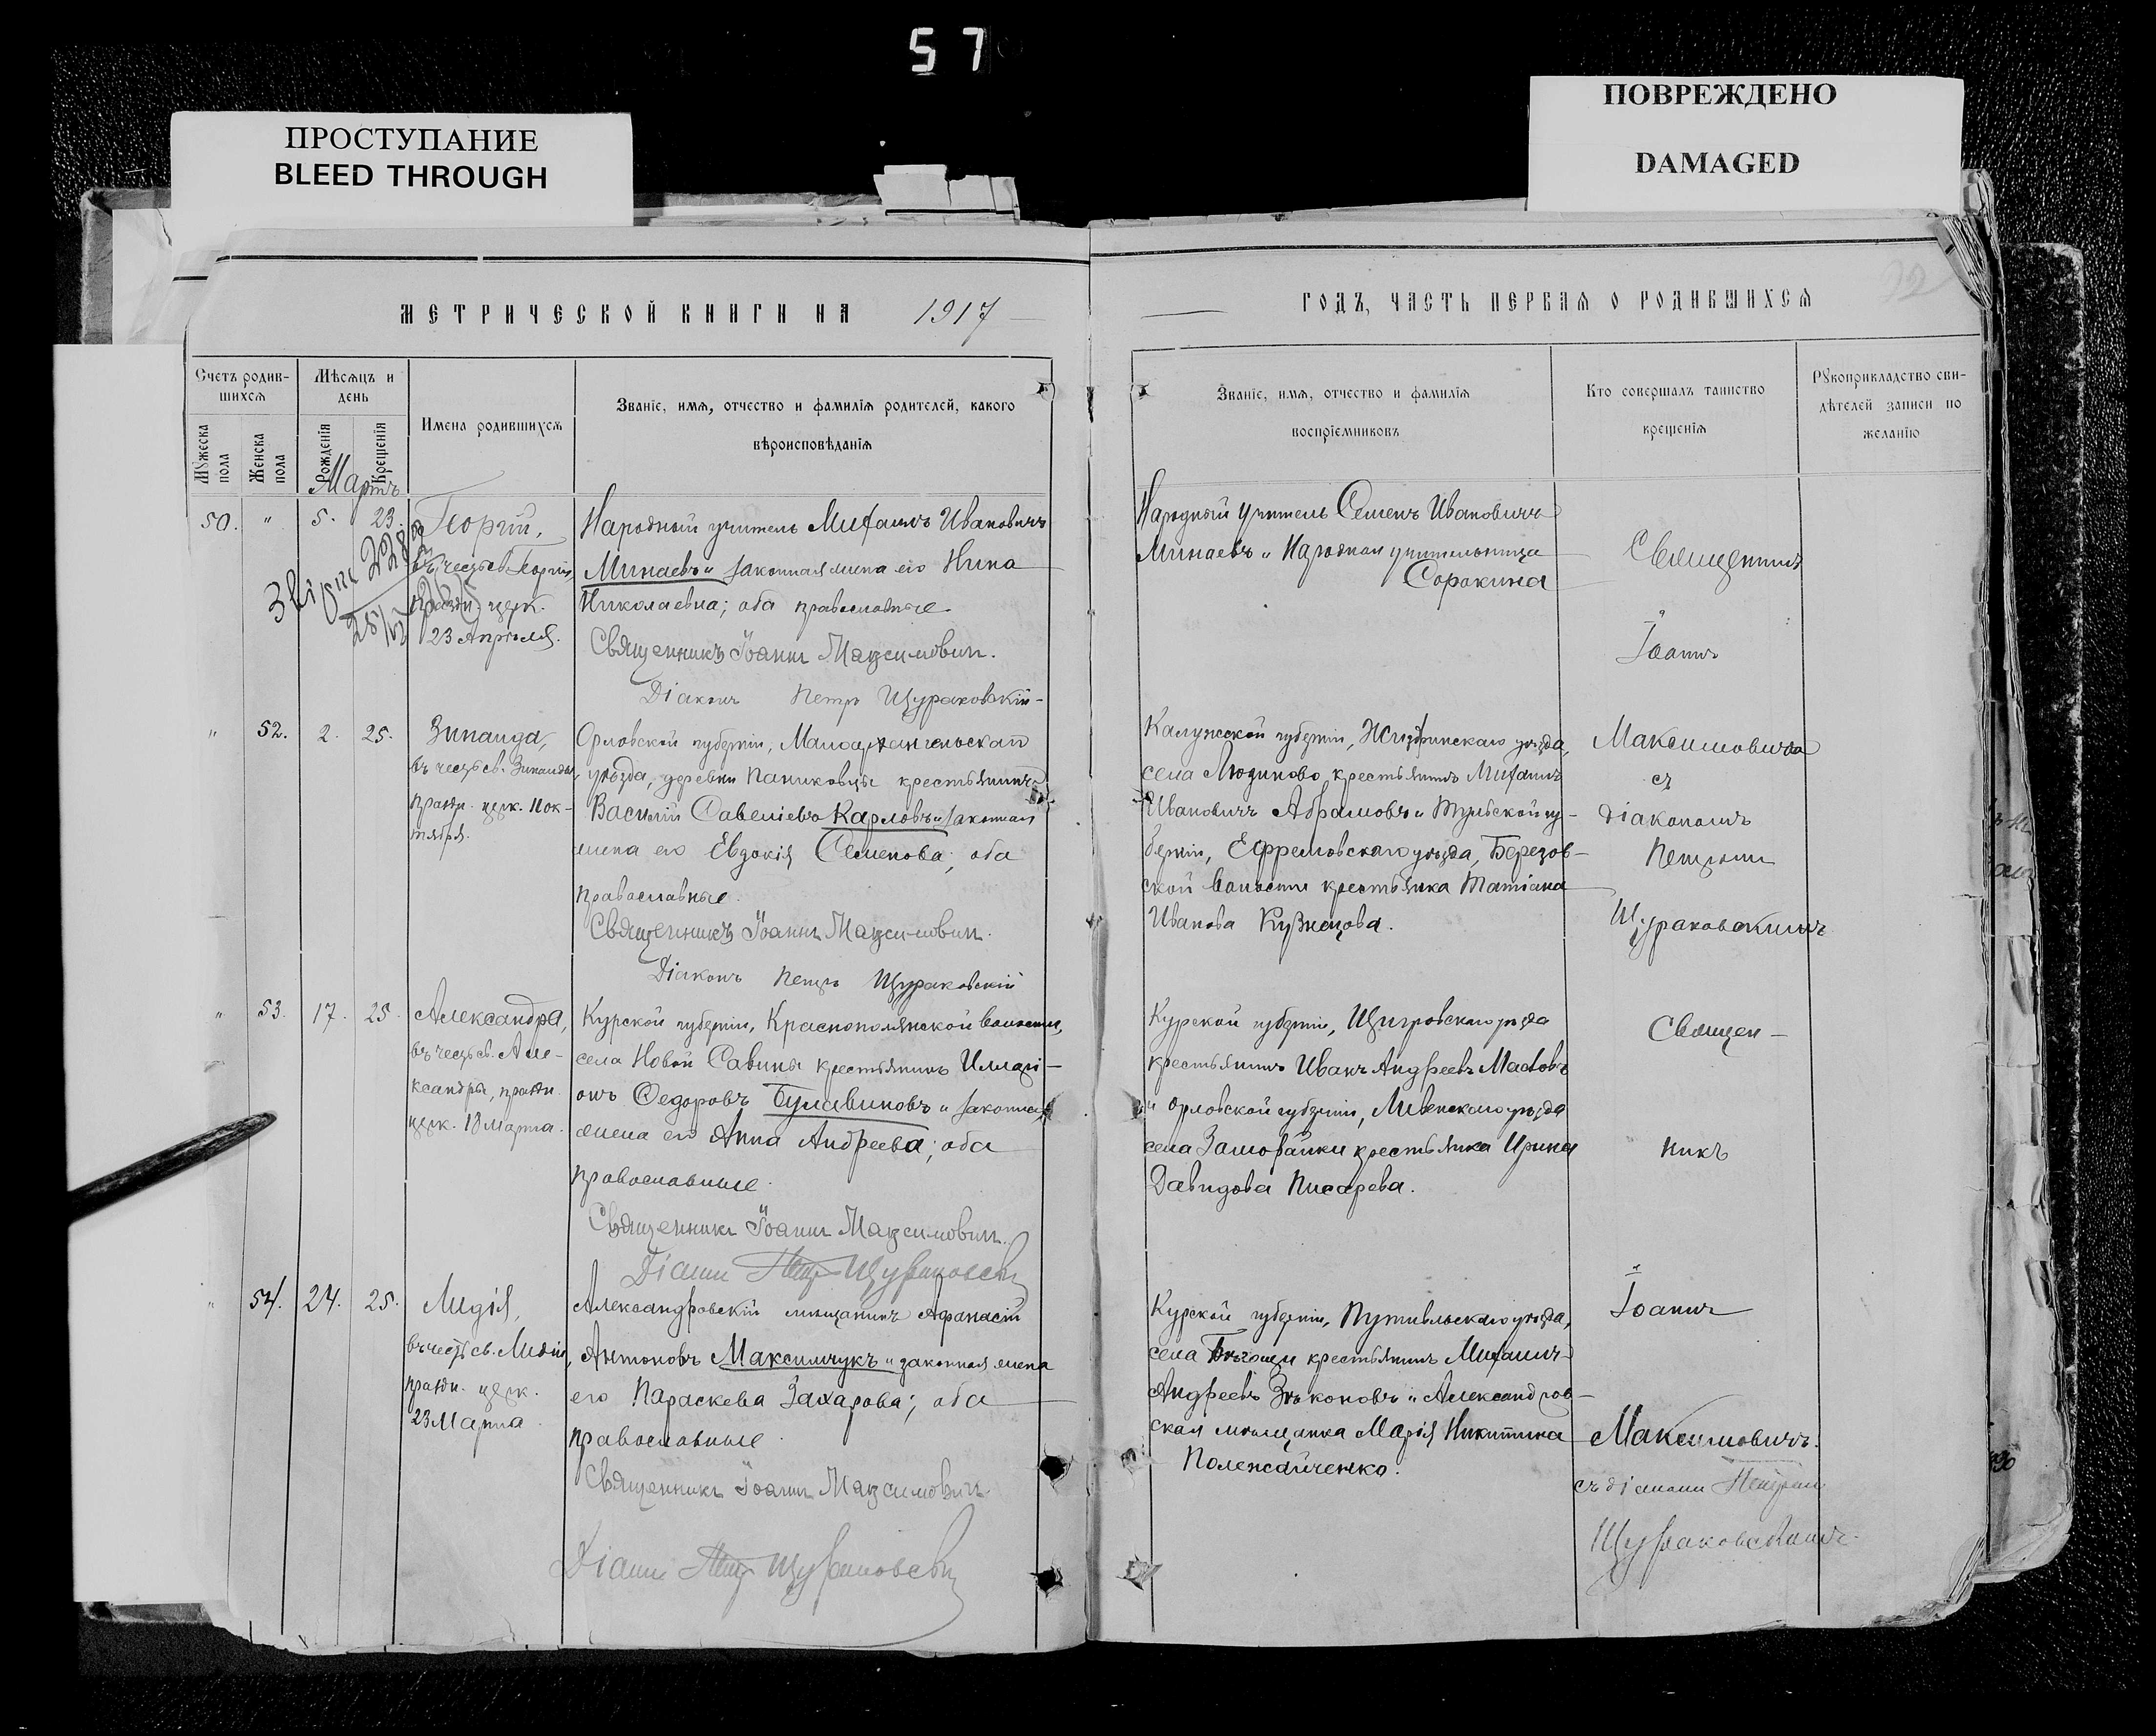 57
ПРОСТУПАНИЕ
BLEED THROUGH
ПОВРЕЖДЕНО
DAMAGED
МЕТРИЧЕСКОЙ КНИГИ НА 1917
Счетъ родив-
шихся
Мѣсяцъ и
день
Мужеска
пола
Женска
пола
Рожденія
Крещенія
Имена родившихся
Званіе, имя, отчество и фамилія родителей, какого
вѣроисповѣданія
Мартъ
50. " 5. 23. Георгій,
въ честь св. Георгія,
праздн. церк.
23 Апрѣля.
Народный учитель Михаилъ Ивановичъ
Минаевъ и законная жена его Нина
Николаевна; оба православные.
Священникъ Іоаннъ Максимович.
Діаконъ Петръ Щураковскій
" 52. 2. 25. Зинаида,
въ честь св. Зинаиды,
праздн. церк. 11 ок-
тября.
Орловской губерніи, Малоархангельскаго
уѣзда, деревни Паниковцы крестьянинъ
Василій Савеліевъ Карловъ и законная
жена его Евдокія Семенова; оба
православные.
Священникъ Іоаннъ Максимович.
Діаконъ Петръ Щураковскій
" 53. 17. 25. Александра,
въ честь св. Але-
ксандры, праздн.
церк. 18 Марта.
Курской губерніи, Краснополянской волости,
села Новой Савины крестьянинъ Иларі-
онъ Ѳедоровъ Булавиновъ и законная
жена его Анна Андреева; оба
православные.
Священникъ Іоаннъ Максимович.
Діаконъ Петръ Щураковскій
" 54. 24. 25. Лидія,
въ честь св. Лидіи,
праздн. церк.
23 Марта.
Александровскій мѣщанинъ Афанасій
Антоновъ Максимчукъ и законная жена
его Параскева Захарова; оба
православные.
Священникъ Іоаннъ Максимович.
Діаконъ Петръ Щураковскій
ГОДЪ, ЧАСТЬ ПЕРВАЯ О РОДИВШИХСЯ
Званіе, имя, отчество и фамилія
воспріемниковъ
Кто совершалъ таинство
крещенія
Рукоприкладство сви-
дѣтелей записи по
желанію
Народный учитель Семенъ Ивановичъ
Минаевъ и Народная учительница
Сорокина
Калужской губерніи, Жиздринскаго уѣзда,
села Людиново крестьянинъ Михаилъ
Ивановичъ Абрамовъ и Тульской гу-
берніи, Ефремовскаго уѣзда, Березов-
ской волости крестьянка Татіана
Иванова Кузнецова.
Курской губерніи, Щигровскаго уѣзда
крестьянинъ Иванъ Андреевъ Масловъ
и Орловской губерніи, Ливенскаго уѣзда
села крестьянка Ирина
Давидова Писарева.
Курской губерніи, Путивльскаго уѣзда,
села крестьянинъ Михаилъ
Андреевъ и Александров-
ская мѣщанка Марія Никитина
Полежайченко.
Священникъ
Іоаннъ
Максимовичъ
съ
діакономъ
Петромъ
Щураковскимъ
Священ-
никъ
Іоаннъ
Максимовичъ.
съ діакономъ Петромъ
Щураковскимъ.